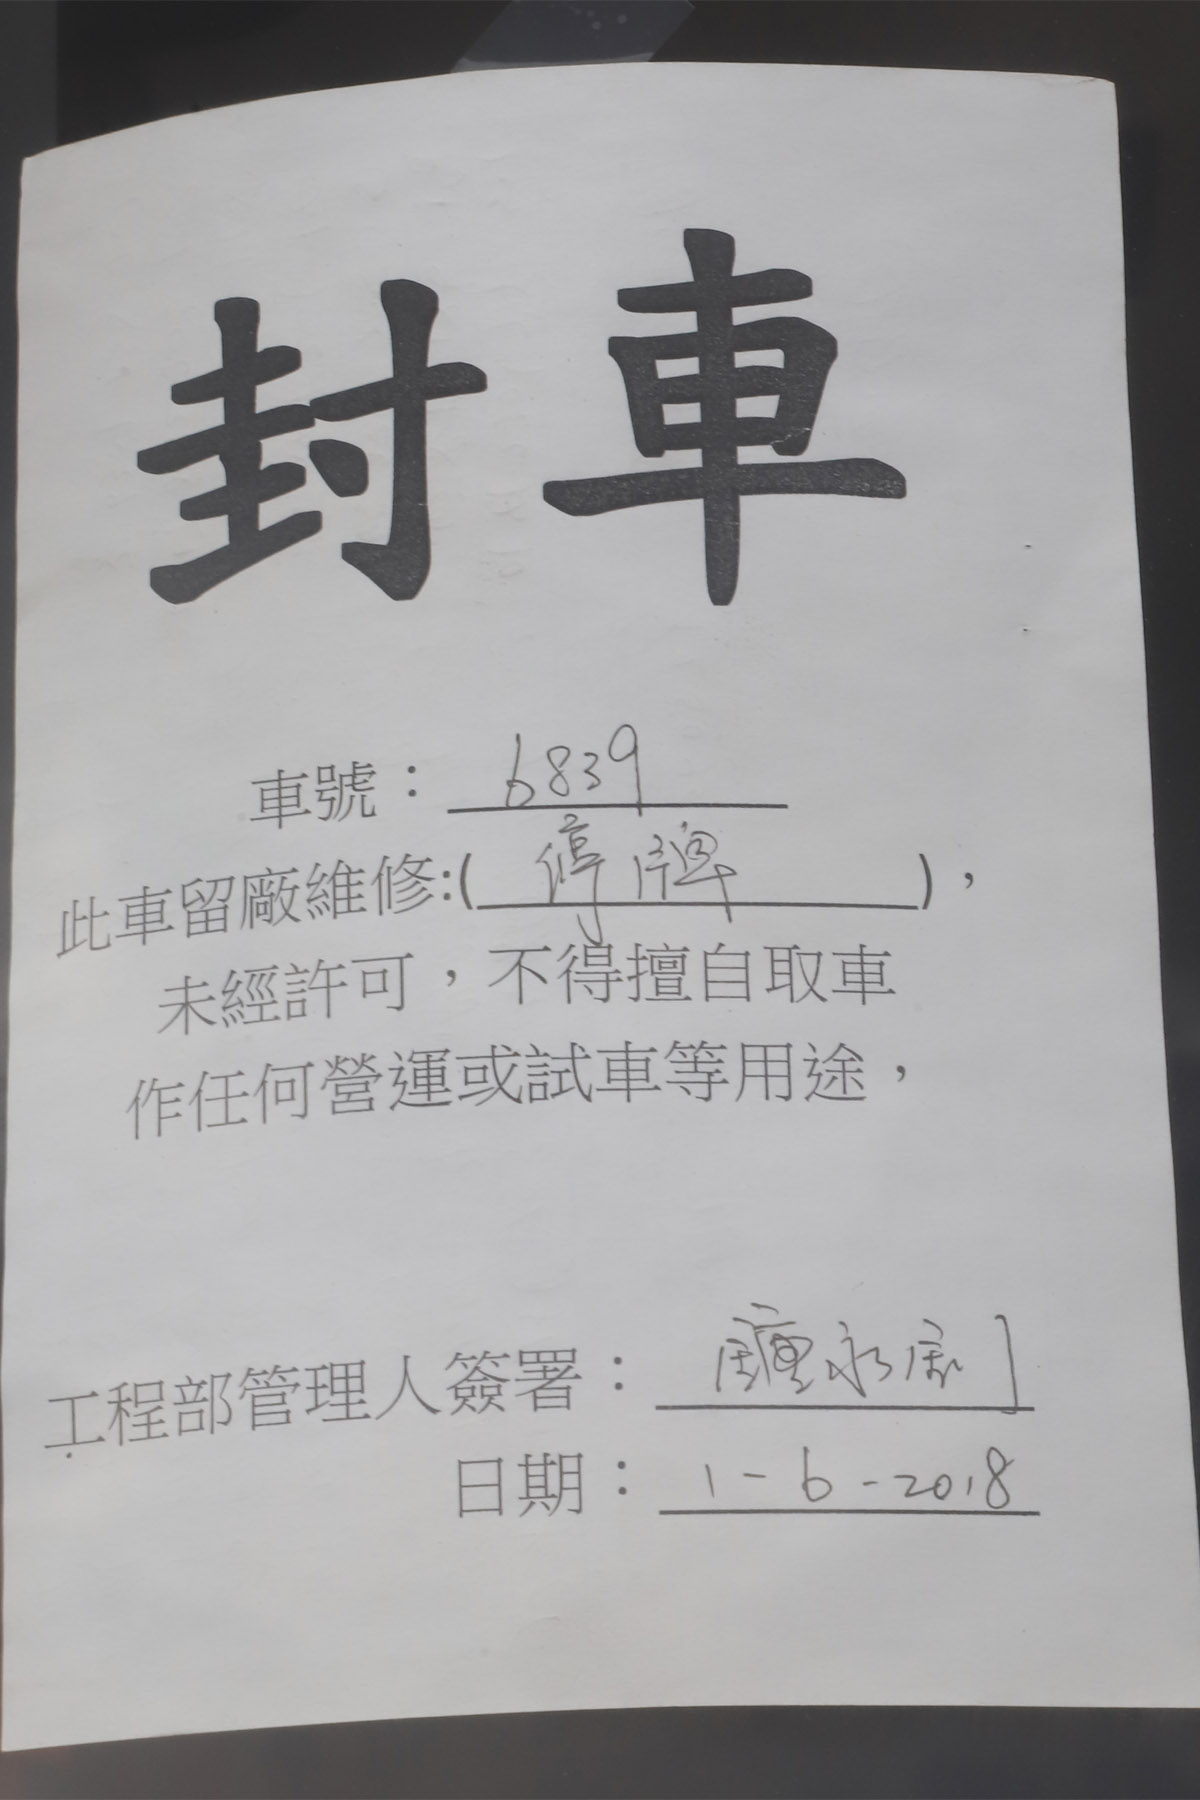 封車
車號： 6839
此車留廠維修:( 停牌 )，
未經許可，不得擅自取車
作任何營運或試車等用途，
工程部管理人簽署：
日期： 1-6-2018